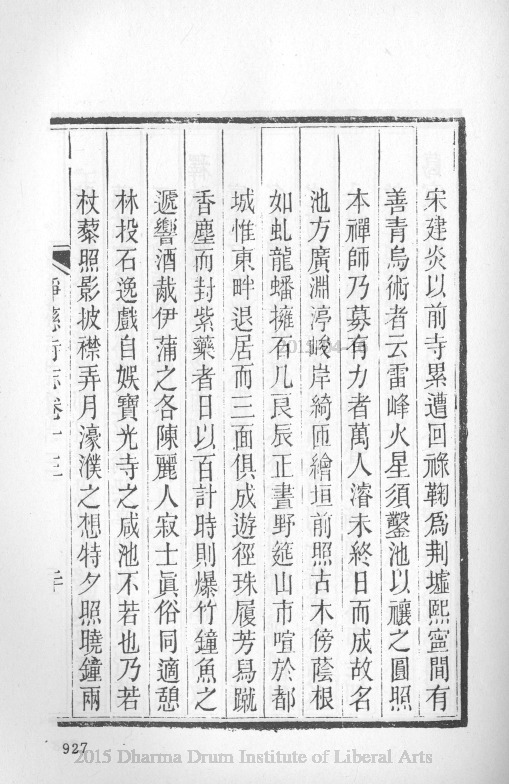 宋建炎以前寺累遭回祿鞠爲荆墟熙寧間有
善青烏術者云雷峰火星須鑿池以禳之圓照
本禪師乃募有力者萬人濬未終日而成故名
池方廣淵渟峻岸綺匝繪垣前照古木傍蔭根
如虬龍蟠擁石几良辰正晝野筵山市喧於都
城惟東畔退居而三面俱成遊徑珠履芳舄蹴
香塵而封紫藥者日以百計時則爆竹鐘魚之
遞響酒胾伊蒲之各陳麗人寂士眞俗同適憩
林投石逸戲自娛寶光寺之咸池不若也乃若
杖藜照影披襟弄月濠濮之想特夕照曉鐘兩
淨慈寺志卷十三
927
2015 Dharma Drum Institute of Liberal Arts